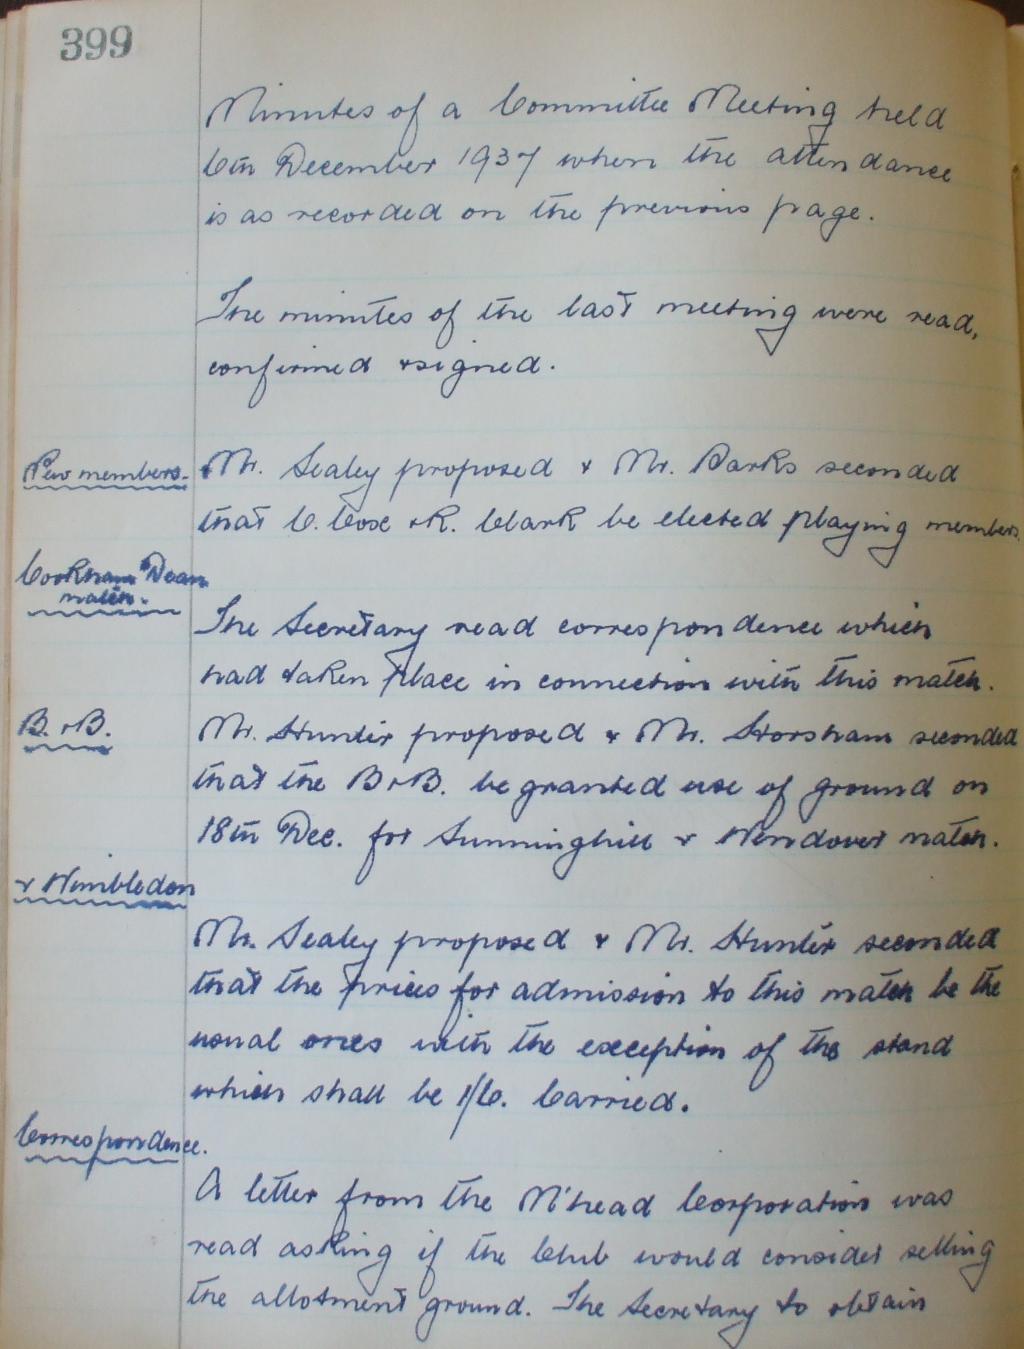 399
Minutes of a Committee Meeting held
6th December 1937 when the attendance
is as recorded on the previous page.
The minutes of the last meeting were read,
confirmed & signed.
New members.
Mr. Sealey proposed & Mr. Parks seconded
that C. Cox & R. Clark be elected playing members.
Cookham Dean
match.
The Secretary read correspondence which
had taken place in connection with this match.
B. & B.
Mr. Hunter proposed & Mr. Horsham seconded
that the B & B. be granted use of ground on
18th Dec. for Sunninghill & Wendover match.
v Wimbledon
Mr. Sealey proposed & Mr. Hunter seconded
that the prices for admission to this match be the
usual ones with the exception of the stand
which shall be 1/6. Carried.
Correspondence.
A letter from the M'head Corporation was
read asking if the Club would consider selling
the allotment ground. The Secretary to obtain